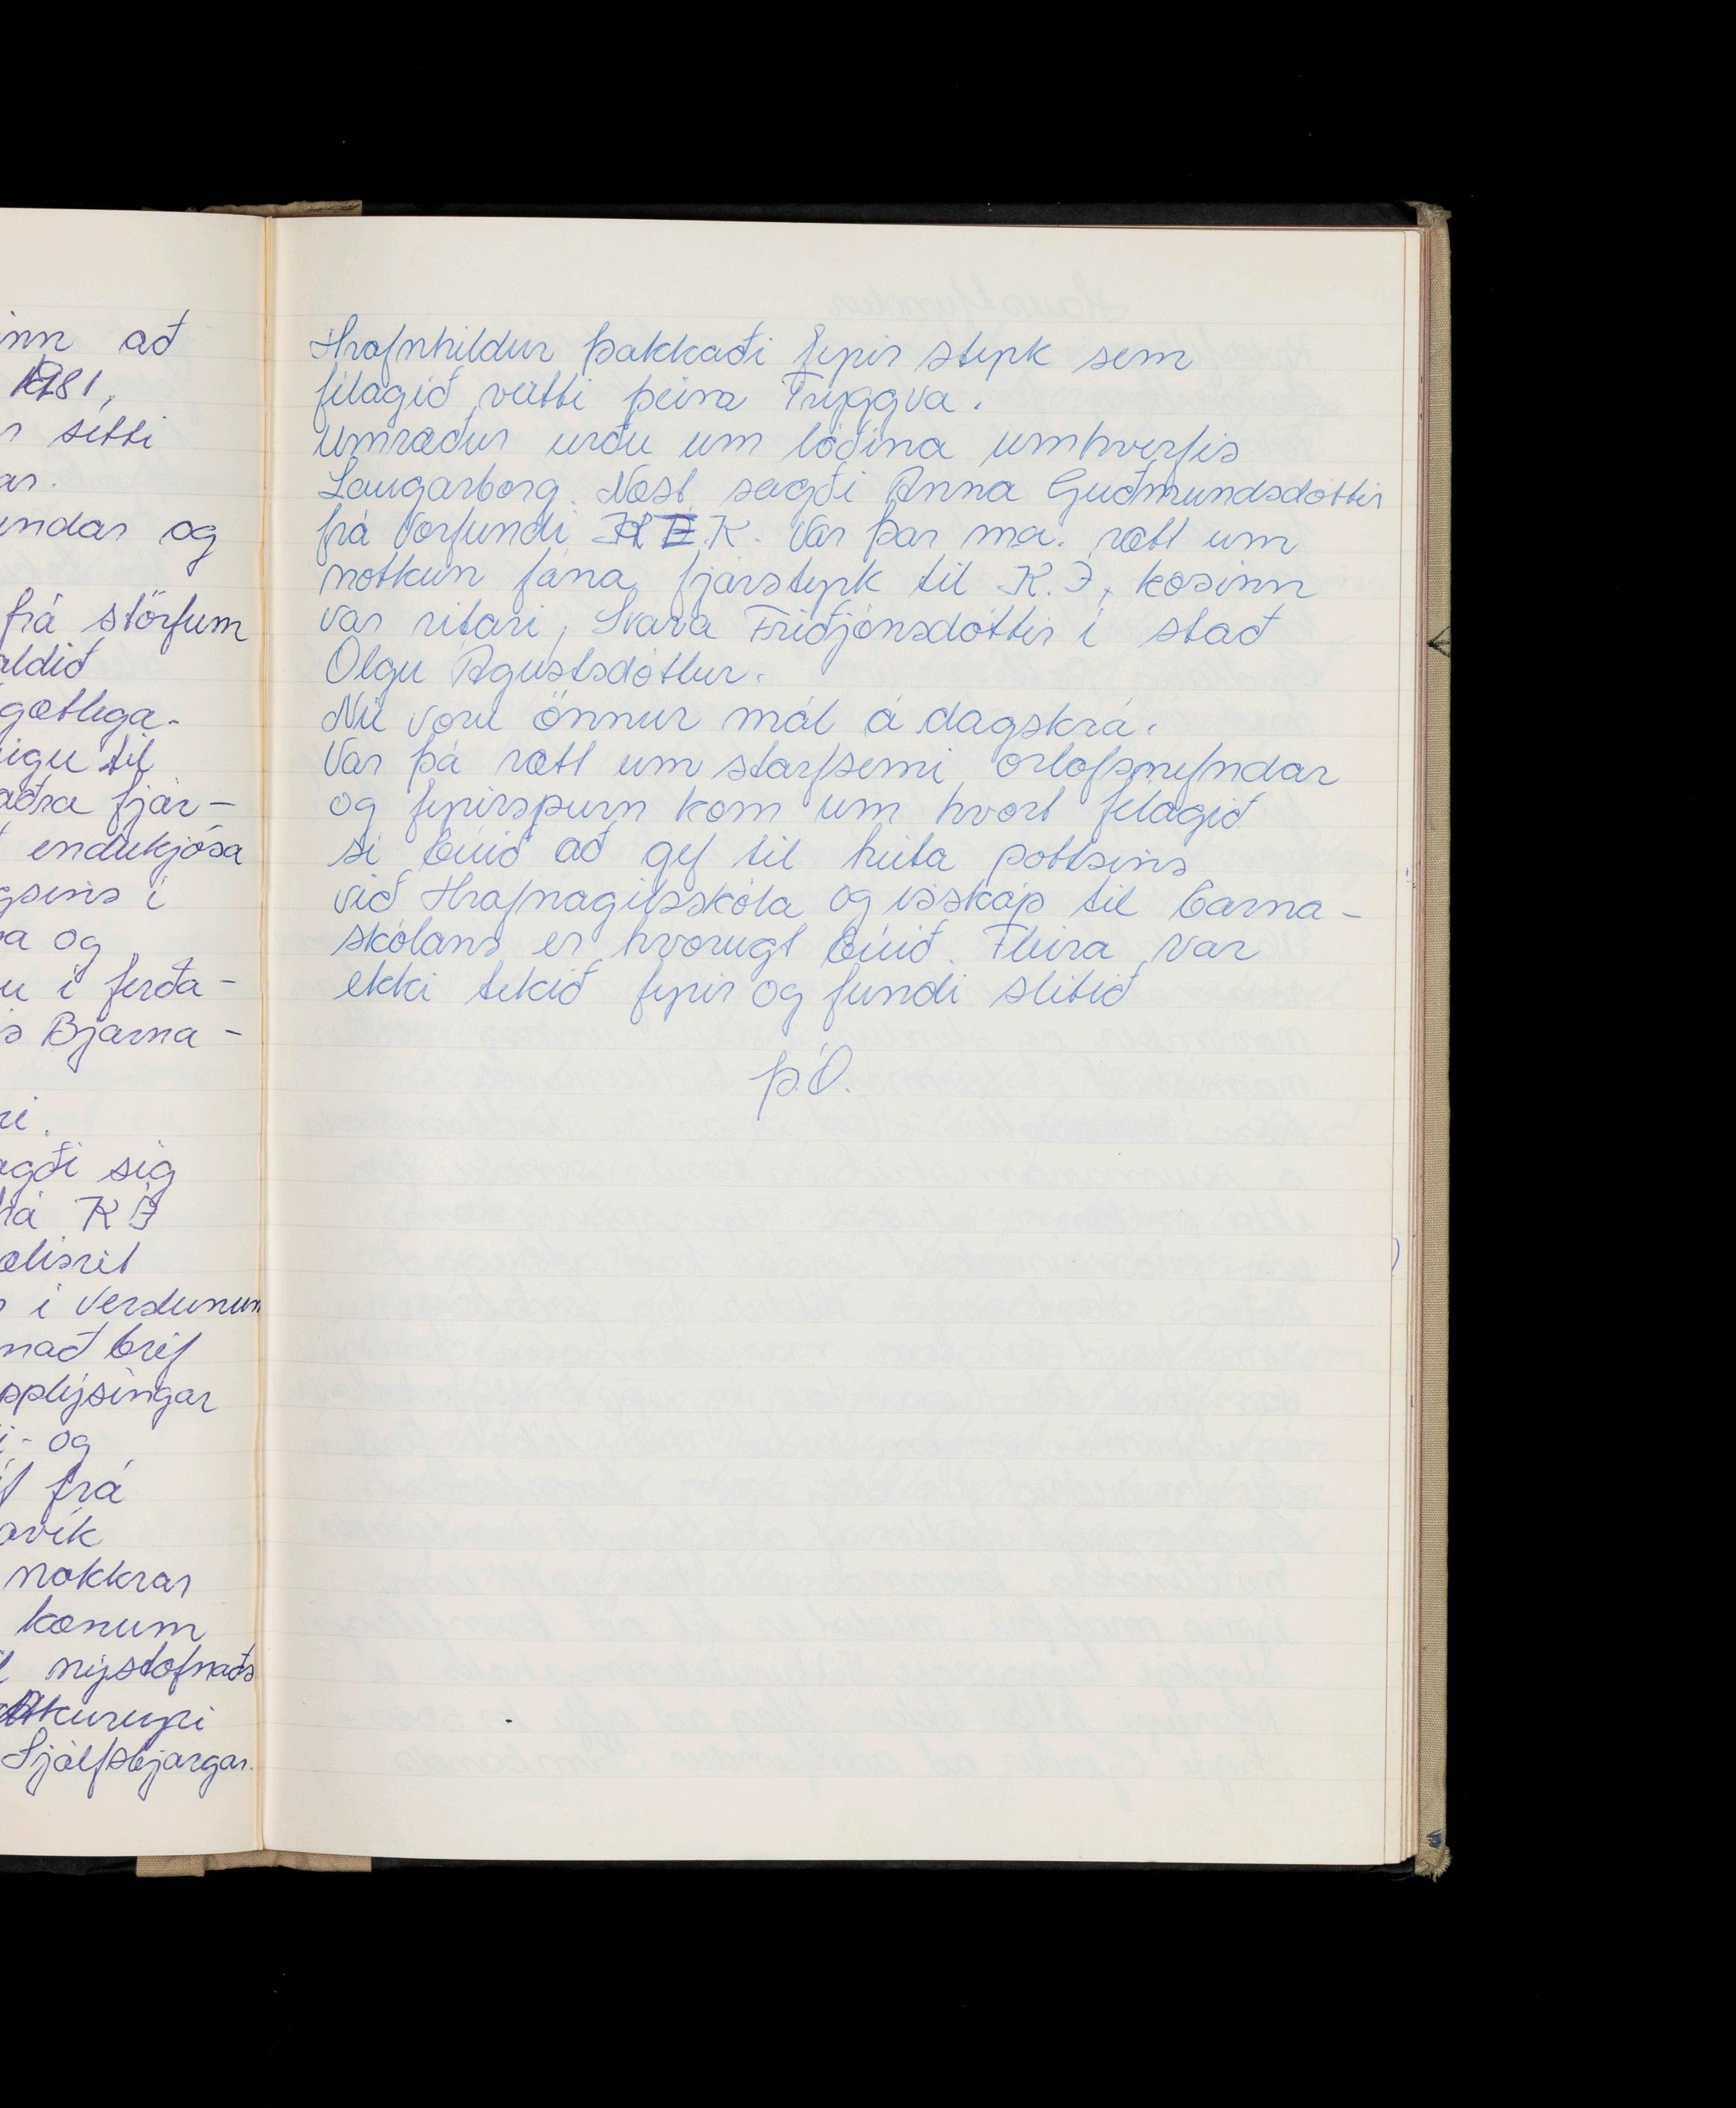 inn að
1981,
r sétti
ar.
undar og
frá störfum
aldið
gætlega.
eigu til
aðra fjár-
endukjósa
gsins í
a og
u í ferða-
s Bjarna-
ri.
agði sig
há K.Í
ælisrit
í Verslunum
nað bréf
pplýsingar
i- og
f frá
avík
nokkrar
konum
nýstofnaðs
Atkureyri
Sjálfsbjargar.
Hrafnhildur þakkaði fyrir styrk sem
félagið veitti þeim Tryggva.
Umræður urðu um lóðina umhverfis
Laugarborg. Næst sagði Anna Guðmundsdóttir
frá Vorfundi H E.K. Var þar ma. rætt um
notkun fána, fjárstyrk til K.Í, kosinn
var ritari, Svava Friðjónsdóttir í stað
Olgu Ágústsdóttur.
Nú voru önnur mál á dagskrá.
Var þá rætt um starfsemi orlofsnefndar
og fyrirspurn kom um hvort félagið
sé búið að gef til hita pottsins
við Hrafnagilsskóla og ísskáp til barna-
skólans er hvorugt búið. Fleira var
ekki tekið fyrir og fundi slitið
Þ.Ó.